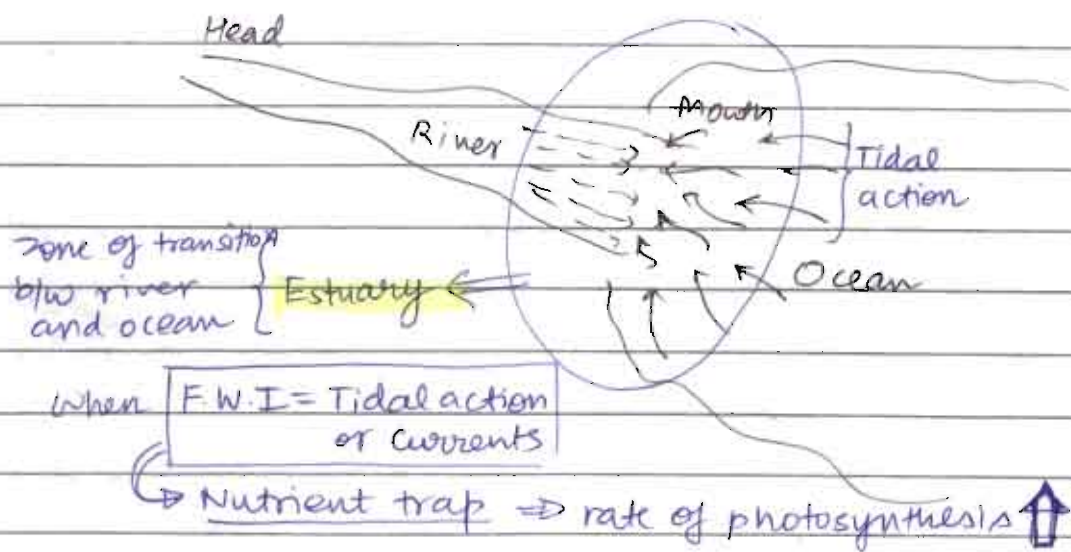 Head
Mouth
River
Tidal
action
Ocean
zone of transition
b/w river
and ocean
Estuary
When F.W.I = Tidal action
or currents
Nutrient trap ⇒ rate of photosynthesis ⇧